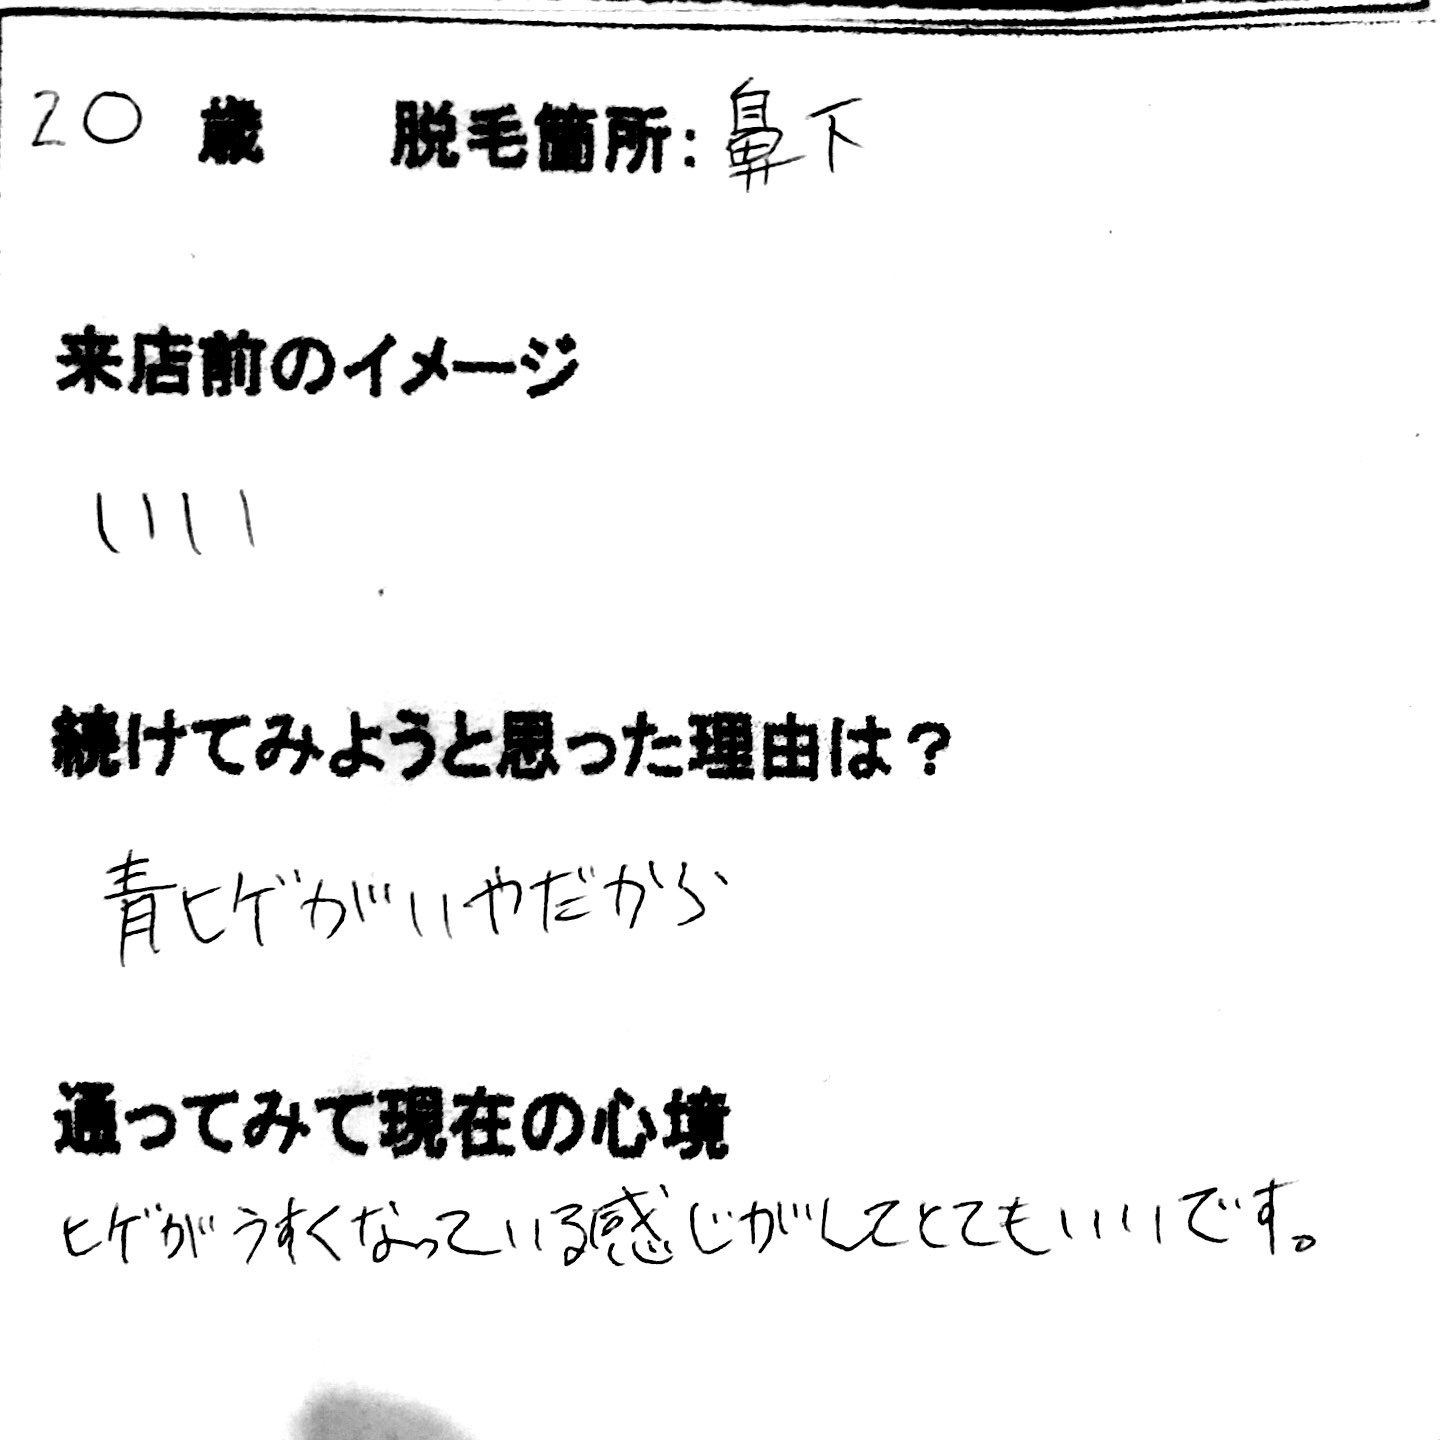 20 歳 脱毛箇所:鼻下
来店前のイメージ
いい
続けてみようと思った理由は?
青ヒゲがいやだから
通ってみて現在の心境
ヒゲがうすくなっている感じがしてとてもいいです。